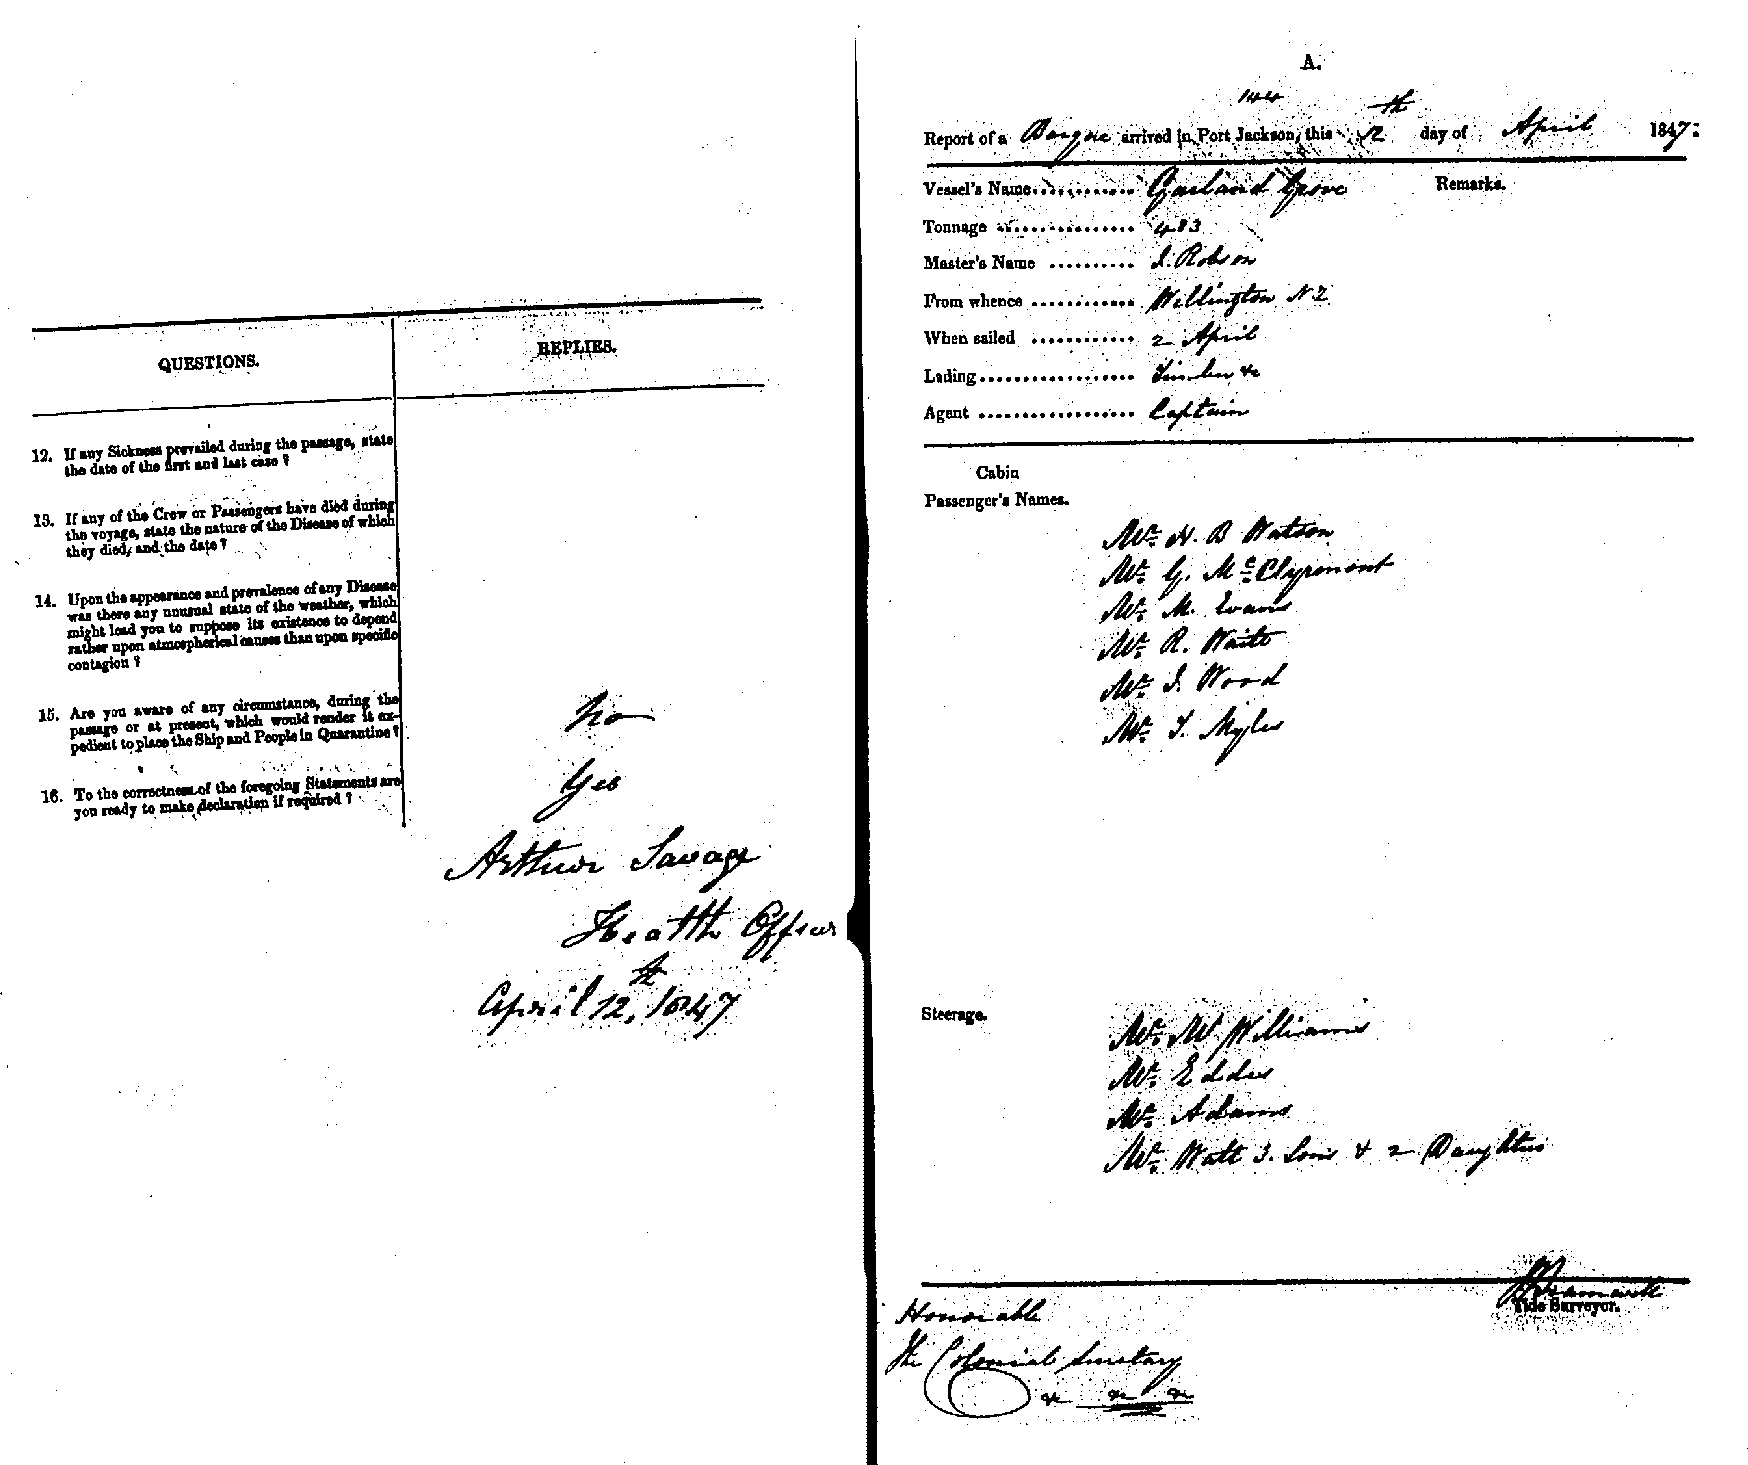 QUESTIONS. REPLIES.
12. If any Sickness prevailed during the passage, state
the date of the first and last case ?
13. If any of the Crew or Passengers have died during
the voyage, state the nature of the Disease of which
they died, and the date ?
14. Upon the appearance and prevalence of any Disease
was there any unusual state of the weather, which
might lead you to suppose its existence to depend
rather upon atmospherical causes than upon specific
contagion ?
15. Are you aware of any circumstance, during the
passage or at present, which would render it ex-
pedient to place the Ship and People in Quarantine ?
No
16. To the correctness of the foregoing Statements are
you ready to make declaration if required ?
Yes
Arthur Savage
Health Officer
April 12th, 1847
A.
144
Report of a Barque arrived in Port Jackson, this 12th day of April 1847:
Vessel's Name Garland Grove Remarks.
Tonnage 483
Master's Name J. Robson
From whence Wellington NZ
When sailed 2 April
Lading Timber &c
Agent Captain
Cabin
Passenger's Names.
Mr. H. B Watson
Mr. G. McClyremont
Mr. M. Evans
Mr. R. Waite
Mr. J. Wood
Mr. T. Myles
Steerage.
Mr. W Williams
Mr. Eddie
Mr. Adams
Mr. Watt 3. Sons & 2 Daughters
Tide Surveyor.
Honorable
The Colonial Secretary
&c &c &c